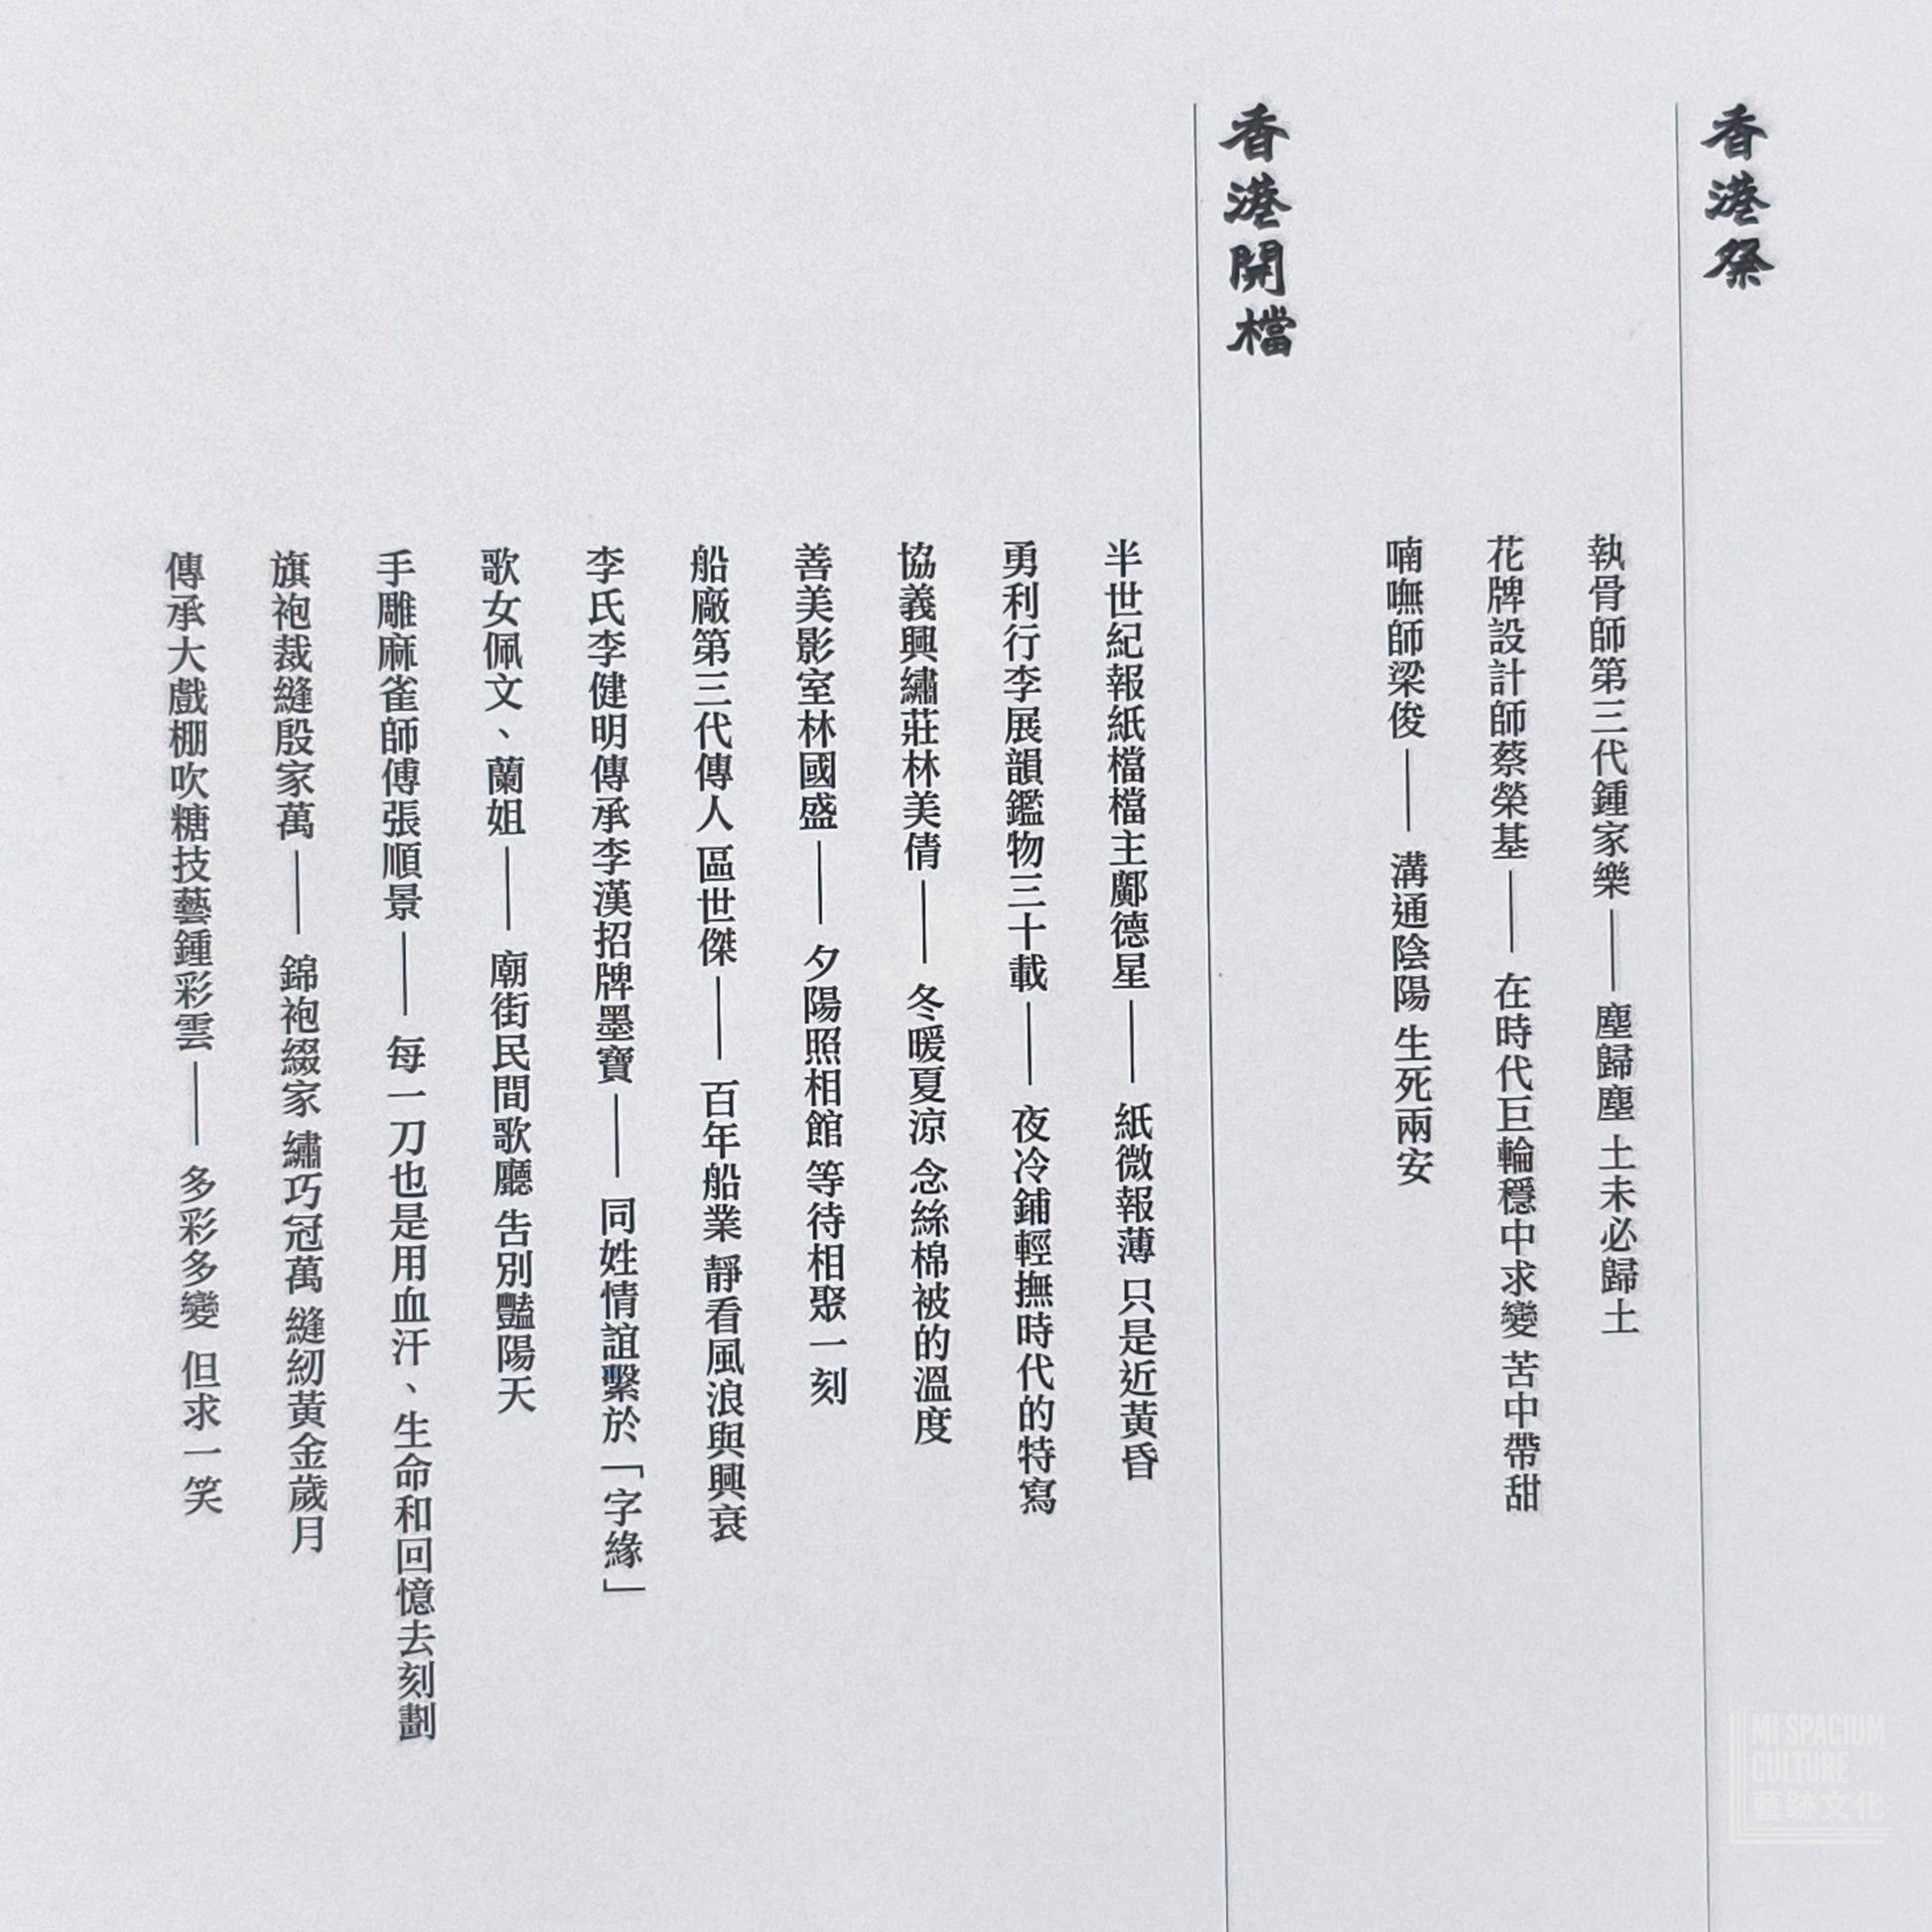 香港祭
執骨師第三代鍾家樂——塵歸塵 土未必歸土
花牌設計師蔡榮基——在時代巨輪穩中求變 苦中帶甜
喃嘸師梁俊——溝通陰陽 生死兩安
香港開檔
半世紀報紙檔檔主鄺德星——紙微報薄 只是近黃昏
勇利行李展韻鑑物三十載——夜冷鋪輕撫時代的特寫
協義興繡莊林美倩——冬暖夏涼 念絲棉被的溫度
善美影室林國盛——夕陽照相館 等待相聚一刻
船廠第三代傳人 區世傑——百年船業 靜看風浪與興衰
李氏李健明傳承李漢招牌墨寶——同姓情誼繫於「字緣」
歌女佩文、蘭姐——廟街民間歌廳 告別豔陽天
手雕麻雀師傅張順景——每一刀也是用血汗、生命和回憶去刻劃
旗袍裁縫殷家萬——錦袍綴家 繡巧冠萬 縫紉黃金歲月
傳承大戲棚吹糖技藝鍾彩雲——多彩多變 但求一笑
MI SPACIUM
CULTURE
藝跡文化